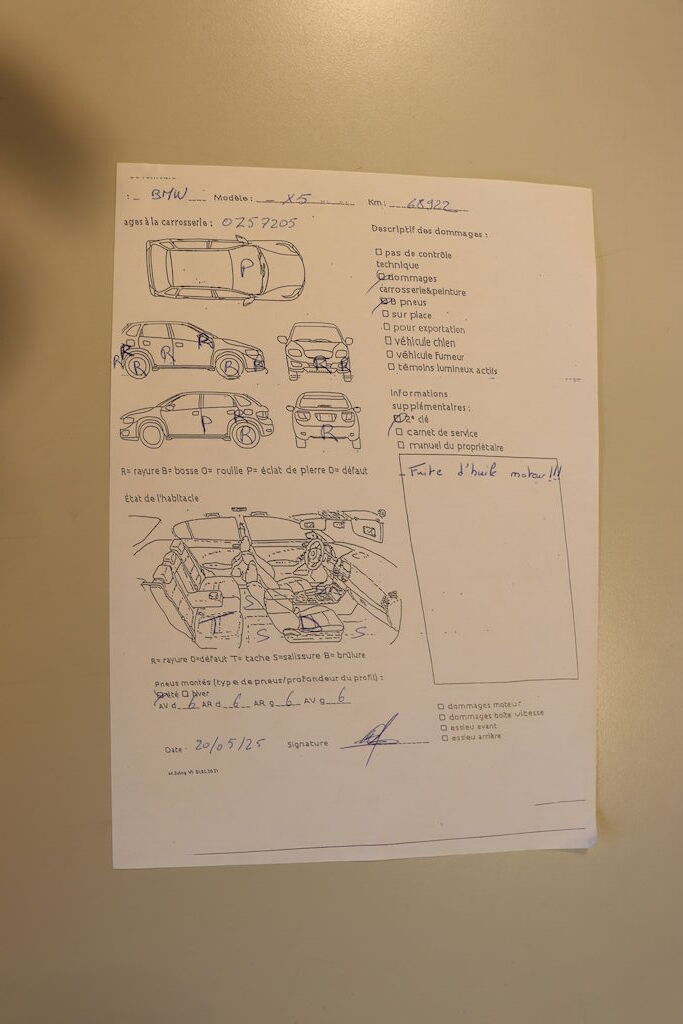 : BMW Modèle : X5 Km : 68922
ages à la carrosserie : 0257205
Descriptif des dommages :
pas de contrôle
technique
dommages
carrosserie&peinture
8 pneus
sur place
pour exportation
véhicule chien
véhicule fumeur
témoins lumineux actifs
P
R R R R B R
R R
P R B
R
Informations
supplémentaires :
2e clé
carnet de service
manuel du propriétaire
R= rayure B= bosse O= rouille P= éclat de pierre D= défaut
- Fuite d'huile moteur!!!
État de l'habitacle
T S S D S
R= rayure D=défaut T= tache S=salissure B= brûlure
Pneus montés (type de pneus/profondeur du profil) :
été hiver
AV d 6 AR d 6 AR g 6 AV g 6
dommages moteur
dommages boîte vitesse
essieu avant
essieu arrière
Date 20/05/25 Signature